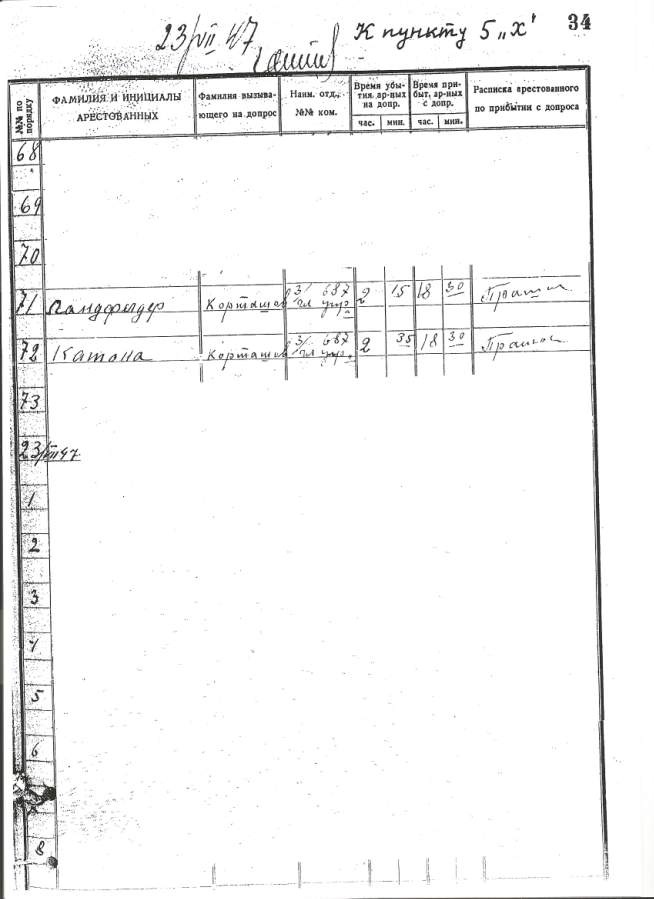 23/VII 47
К пункту 5 „Х"
34
№№ по порядку
ФАМИЛИЯ И ИНИЦИАЛЫ АРЕСТОВАННЫХ
Фамилия вызывающего на допрос
Наим. отд., №№ ком.
Время убытия ар-ных на допр.
час. мин.
Время прибыт. ар-ных с допр.
час. мин.
Расписка арестованного по прибытии с допроса
68
69
70
71 Карташев 3/ 687 2 15 18 30
72 Катона Карташев 3/ 687 2 35 18 30
73
23/VII 47
1
2
3
4
5
6
8